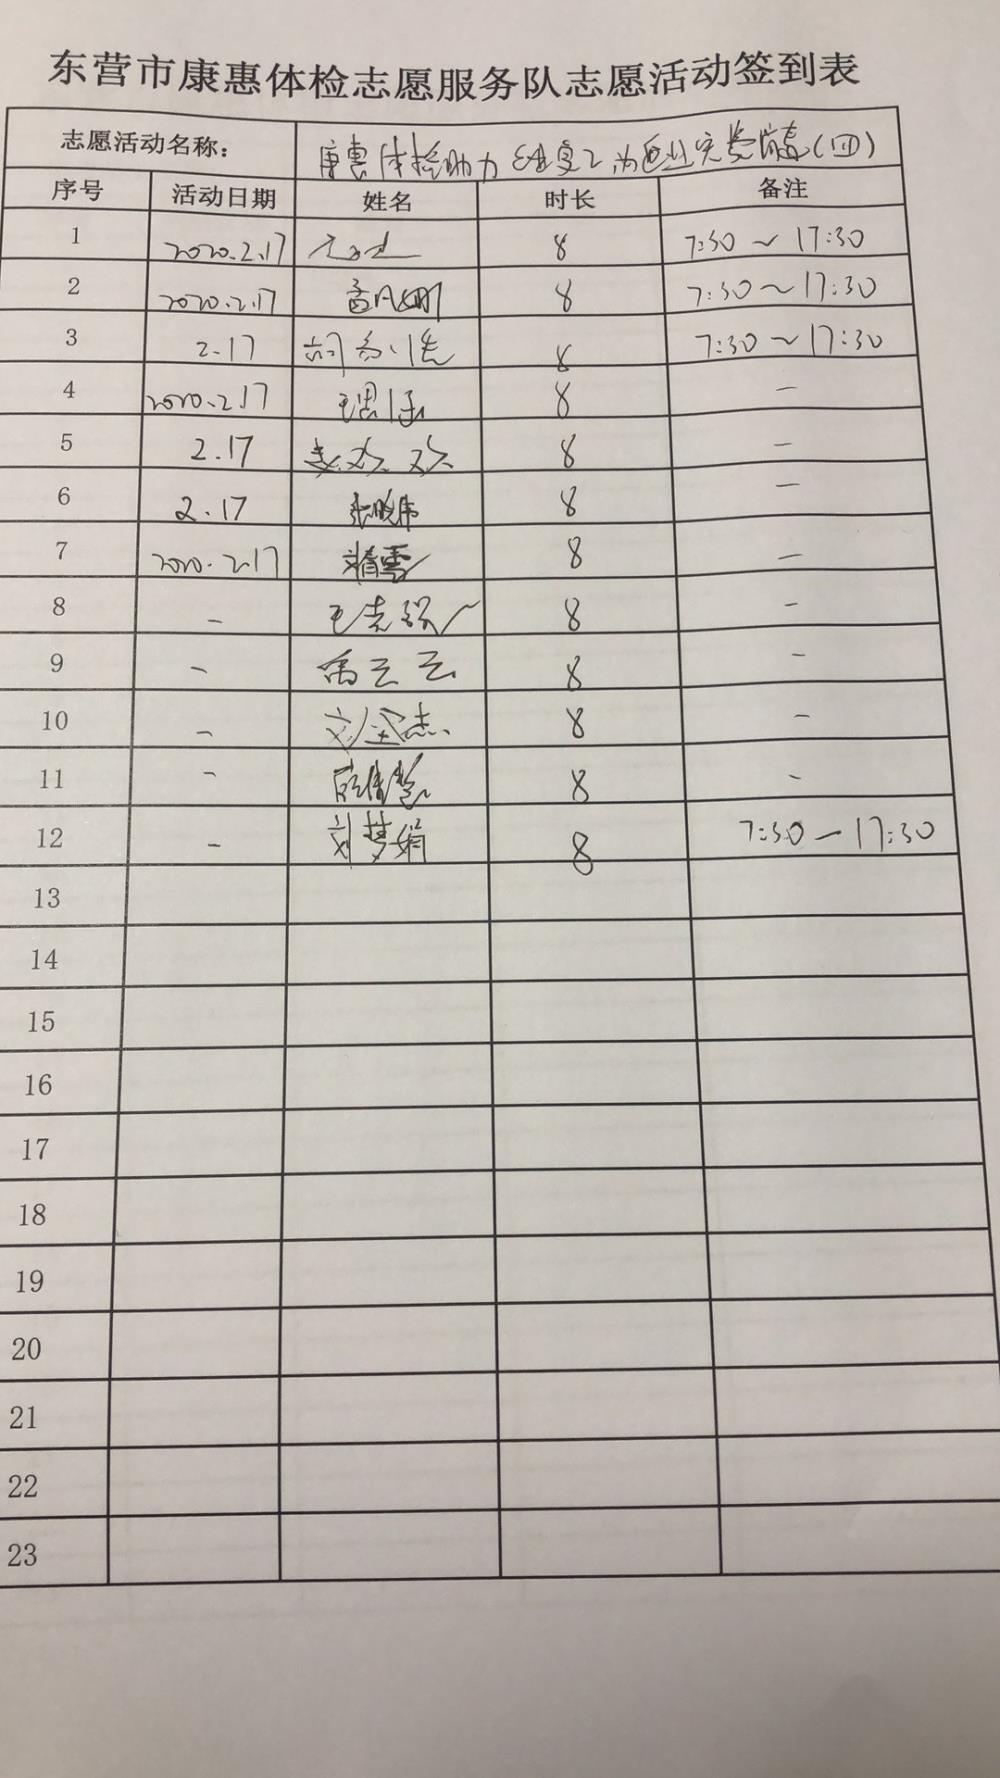 东营市康惠体检志愿服务队志愿活动签到表
志愿活动名称： 康惠体检助力企业复工为企业免费消毒（四）
序号 活动日期 姓名 时长 备注
1 2020.2.17 8 7:30～17:30
2 2020.2.17 孟凡娜 8 7:30～17:30
3 2.17 8 7:30～17:30
4 2020.2.17 王思 8 –
5 2.17 欢欢 8 –
6 2.17 张晓伟 8 –
7 2020.2.17 刘倩雪 8 –
8 – 王志强 8 –
9 – 禹云云 8 –
10 – 刘金杰 8 –
11 – 8 –
12 – 刘梦娟 8 7:30—17:30
13
14
15
16
17
18
19
20
21
22
23